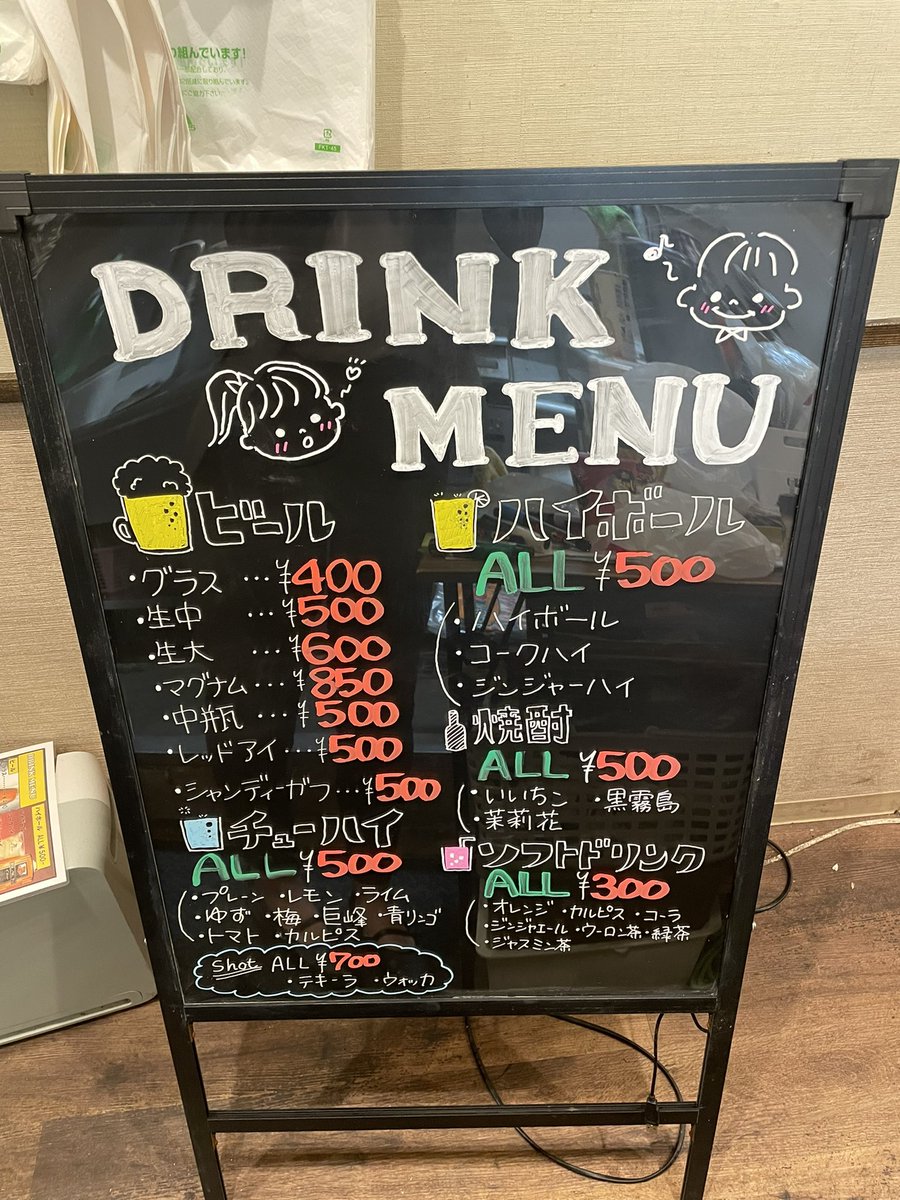 り組んでいます!
PKT-45
DRINK
MENU
ビール
・グラス …¥400
・生中 …¥500
・生大 …¥600
・マグナム…¥850
・中瓶 …¥500
・レッドアイ…¥500
・シャンディーガフ…¥500
チューハイ
ALL ¥500
・プレーン ・レモン ・ライム
・ゆず ・梅 ・巨峰 ・青リンゴ
・トマト ・カルピス
shot ALL ¥700
・テキーラ ・ウォッカ
ハイボール
ALL ¥500
・ハイボール
・コークハイ
・ジンジャーハイ
焼酎
ALL ¥500
・いいちこ ・黒霧島
・茉莉花
ソフトドリンク
ALL ¥300
・オレンジ ・カルピス ・コーラ
・ジンジャエール ・ウーロン茶 ・緑茶
・ジャスミン茶